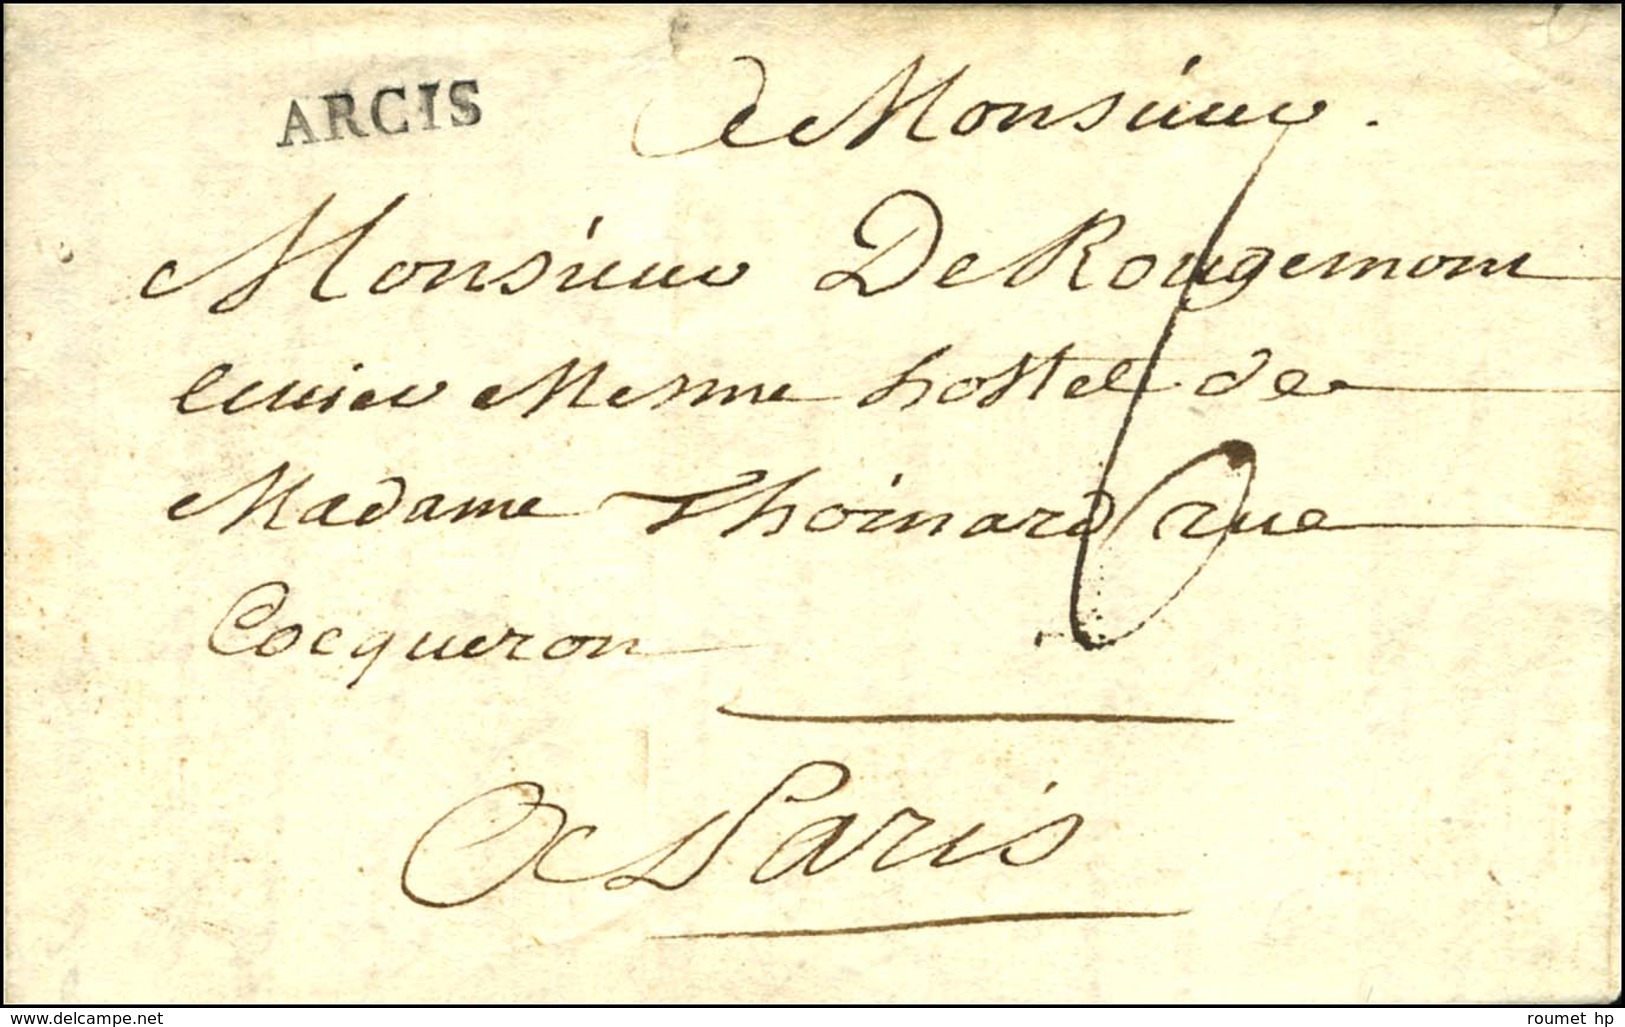 ARCIS
A Monsieur.
Monsieur De Rougemont
Mesme hostel de
Madame Thoinard rue
Cocqueron
6
A Paris
www.delcampe.net
roumet hp